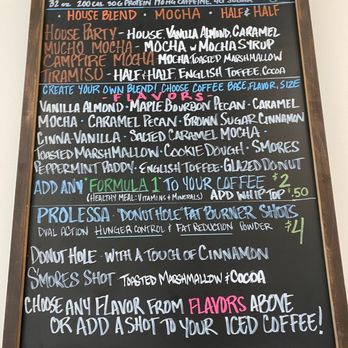 32 oz. 200 CAL 30g PROTEIN 170mg CAFFEINE, 4g SUGAR
HOUSE BLEND • MOCHA • HALF & HALF
HOUSE PARTY - HOUSE, VANILLA ALMOND, CARAMEL
MUCHO MOCHA - MOCHA W MOCHA SYRUP
CAMPFIRE MOCHA MOCHA, TOASTED MARSHMALLOW
TIRAMISU - HALF & HALF ENGLISH TOFFEE, COCOA
CREATE YOUR OWN BLEND! CHOOSE COFFEE BASE, FLAVOR, SIZE
FLAVORS
VANILLA ALMOND • MAPLE BOURBON PECAN • CARAMEL
MOCHA • CARAMEL PECAN • BROWN SUGAR CINNAMON
CINNA-VANILLA • SALTED CARAMEL MOCHA •
TOASTED MARSHMALLOW • COOKIE DOUGH • SMORES
PEPPERMINT PADDY • ENGLISH TOFFEE • GLAZED DONUT
ADD ANY "FORMULA 1" TO YOUR COFFEE $2
(HEALTHY MEAL: VITAMINS & MINERALS) ADD WHIP TOP $.50
PROLESSA • DONUT HOLE FAT BURNER SHOTS
DUAL ACTION HUNGER CONTROL & FAT REDUCTION POWDER $4
DONUT HOLE • WITH A TOUCH OF CINNAMON
S'MORES SHOT TOASTED MARSHMALLOW & COCOA
CHOOSE ANY FLAVOR FROM FLAVORS ABOVE
OR ADD A SHOT TO YOUR ICED COFFEE!